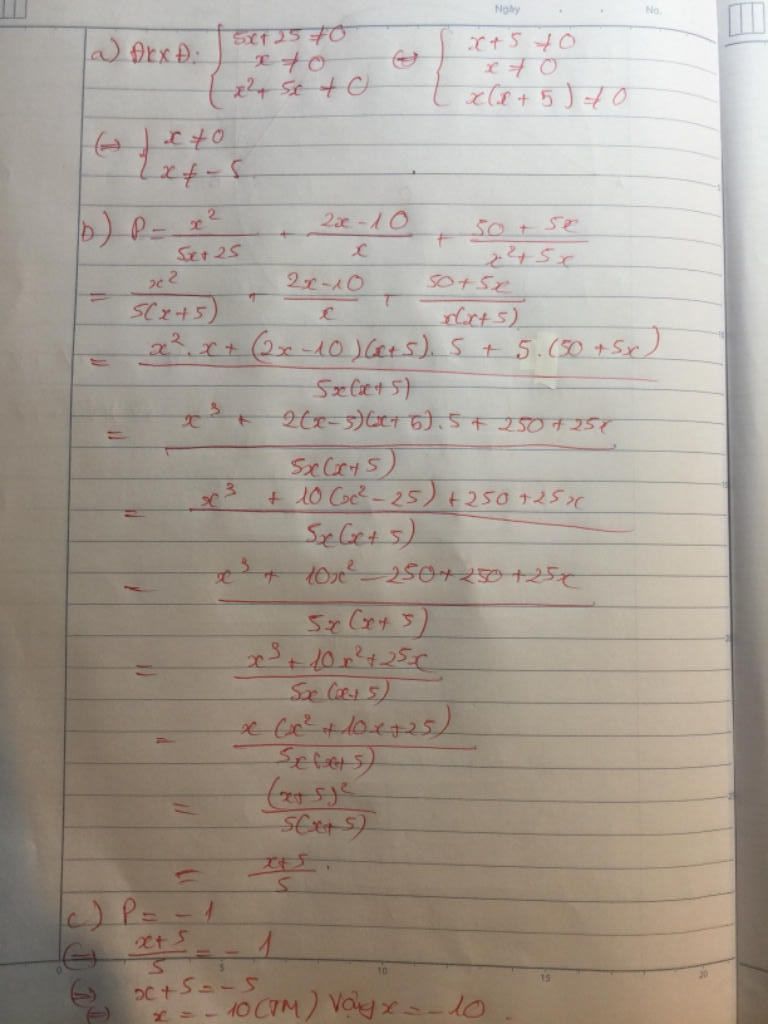 Ngày No.
a) ĐKXĐ: { 5x+25 ≠ 0 ; x ≠ 0 ; x² + 5x ≠ 0 ⇔ { x+5 ≠ 0 ; x ≠ 0 ; x(x+5) ≠ 0
⇔ { x ≠ 0 ; x ≠ -5
b) P = x²/(5x+25) + (2x-10)/x + (50+5x)/(x²+5x)
= x²/(5(x+5)) + (2x-10)/x + (50+5x)/(x(x+5))
= (x².x + (2x-10)(x+5).5 + 5.(50+5x))/(5x(x+5))
= (x³ + 2(x-5)(x+5).5 + 250+25x)/(5x(x+5))
= (x³ + 10(x²-25) + 250+25x)/(5x(x+5))
= (x³ + 10x² - 250+250+25x)/(5x(x+5))
= (x³+10x²+25x)/(5x(x+5))
= x(x²+10x+25)/(5x(x+5))
= (x+5)²/(5(x+5))
= (x+5)/5.
c) P = -1
⇔ (x+5)/5 = -1
⇔ x+5 = -5
⇔ x = -10 (TM) Vậy x = -10.
0 5 10 15 20